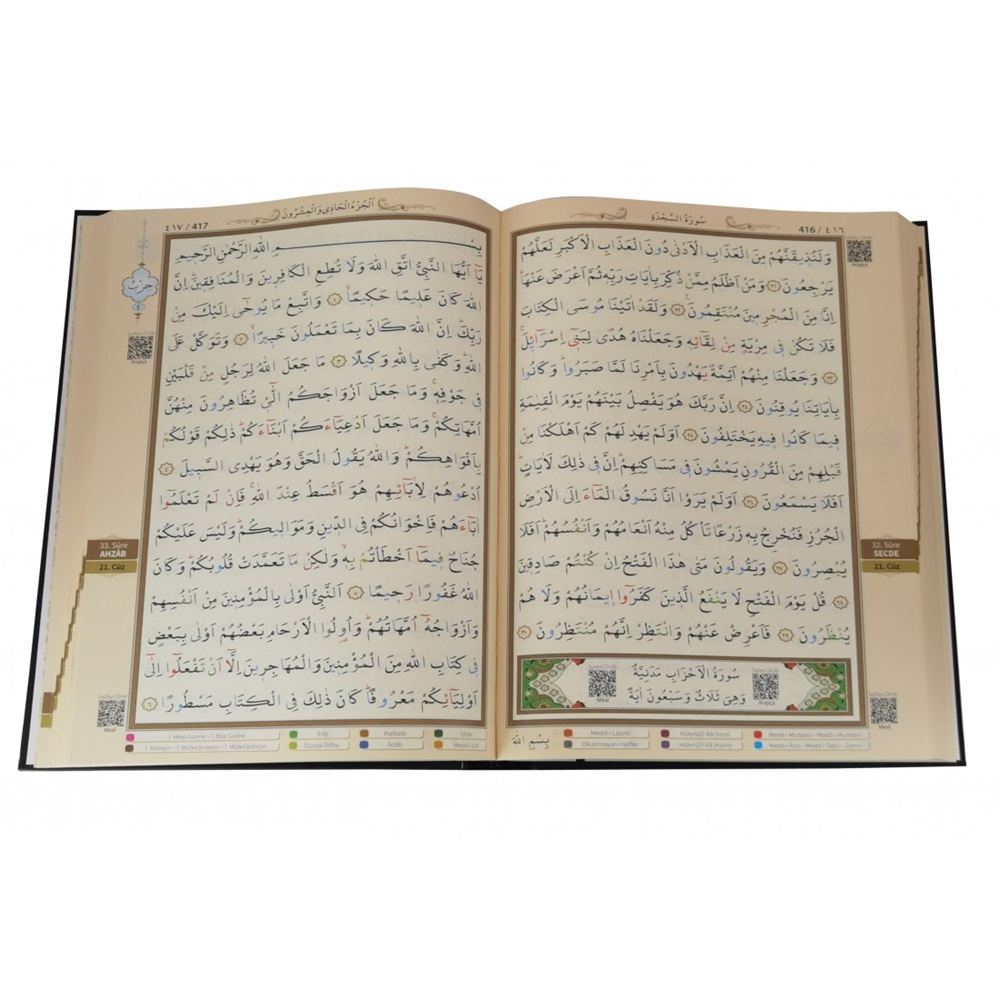 416 / ٤١٦
سُورَةُ السَّجْدَةِ
وَلَنُذ۪يقَنَّهُمْ مِنَ الْعَذَابِ الْاَدْنٰى دُونَ الْعَذَابِ الْاَكْبَرِ لَعَلَّهُمْ
يَرْجِعُونَ ﴿٢١﴾ وَمَنْ اَظْلَمُ مِمَّنْ ذُكِّرَ بِاٰيَاتِ رَبِّه۪ ثُمَّ اَعْرَضَ عَنْهَاۜ
اِنَّا مِنَ الْمُجْرِم۪ينَ مُنْتَقِمُونَ۟ ﴿٢٢﴾ وَلَقَدْ اٰتَيْنَا مُوسَى الْكِتَابَ
فَلَا تَكُنْ ف۪ي مِرْيَةٍ مِنْ لِقَٓائِه۪ وَجَعَلْنَاهُ هُدًى لِبَن۪ٓي اِسْرَٓائ۪لَۚ
﴿٢٣﴾ وَجَعَلْنَا مِنْهُمْ اَئِمَّةً يَهْدُونَ بِاَمْرِنَا لَمَّا صَبَرُواۜ وَكَانُوا
بِاٰيَاتِنَا يُوقِنُونَ ﴿٢٤﴾ اِنَّ رَبَّكَ هُوَ يَفْصِلُ بَيْنَهُمْ يَوْمَ الْقِيٰمَةِ
ف۪يمَا كَانُوا ف۪يهِ يَخْتَلِفُونَ ﴿٢٥﴾ اَوَلَمْ يَهْدِ لَهُمْ كَمْ اَهْلَكْنَا مِنْ
قَبْلِهِمْ مِنَ الْقُرُونِ يَمْشُونَ ف۪ي مَسَاكِنِهِمْۜ اِنَّ ف۪ي ذٰلِكَ لَاٰيَاتٍۜ
اَفَلَا يَسْمَعُونَ ﴿٢٦﴾ اَوَلَمْ يَرَوْا اَنَّا نَسُوقُ الْمَٓاءَ اِلَى الْاَرْضِ
الْجُرُزِ فَنُخْرِجُ بِه۪ زَرْعًا تَأْكُلُ مِنْهُ اَنْعَامُهُمْ وَاَنْفُسُهُمْۜ اَفَلَا
يُبْصِرُونَ ﴿٢٧﴾ وَيَقُولُونَ مَتٰى هٰذَا الْفَتْحُ اِنْ كُنْتُمْ صَادِق۪ينَ
﴿٢٨﴾ قُلْ يَوْمَ الْفَتْحِ لَا يَنْفَعُ الَّذ۪ينَ كَفَرُٓوا ا۪يمَانُهُمْ وَلَا هُمْ
يُنْظَرُونَ ﴿٢٩﴾ فَاَعْرِضْ عَنْهُمْ وَانْتَظِرْ اِنَّهُمْ مُنْتَظِرُونَ ﴿٣٠﴾
سُورَةُ الْاَحْزَابِ مَدَنِيَّةٌ
وَهِيَ ثَلَاثٌ وَسَبْعُونَ اٰيَةً
Meal
Arapça
32. Sûre
SECDE
21. Cüz
Arapça
Meal
بِسْمِ اللّٰهِ
Medd-i Lâzım
Hükmü'r-Râ (İnce)
Medd-i Muttasıl - Medd-i Munfasıl
Okunmayan Harfler
Hükmü'r-Râ (Kalın)
Medd-i Ârız - Medd-i Tabii - Zamir
٤١٧ / 417
اَلْجُزْءُ الْحَاد۪ي وَالْعِشْرُونَ
حِزْبُ
بِسْمِ اللّٰهِ الرَّحْمٰنِ الرَّح۪يمِ
يَٓا اَيُّهَا النَّبِيُّ اتَّقِ اللّٰهَ وَلَا تُطِعِ الْكَافِر۪ينَ وَالْمُنَافِق۪ينَۜ اِنَّ
اللّٰهَ كَانَ عَل۪يمًا حَك۪يمًاۙ ﴿١﴾ وَاتَّبِعْ مَا يُوحٰٓى اِلَيْكَ مِنْ
رَبِّكَۜ اِنَّ اللّٰهَ كَانَ بِمَا تَعْمَلُونَ خَب۪يرًاۙ ﴿٢﴾ وَتَوَكَّلْ عَلَى
اللّٰهِۜ وَكَفٰى بِاللّٰهِ وَك۪يلًا ﴿٣﴾ مَا جَعَلَ اللّٰهُ لِرَجُلٍ مِنْ قَلْبَيْنِ
ف۪ي جَوْفِه۪ۚ وَمَا جَعَلَ اَزْوَاجَكُمُ الّٰٓـ۪ٔي تُظَاهِرُونَ مِنْهُنَّ
اُمَّهَاتِكُمْۚ وَمَا جَعَلَ اَدْعِيَٓاءَكُمْ اَبْنَٓاءَكُمْۜ ذٰلِكُمْ قَوْلُكُمْ
بِاَفْوَاهِكُمْۜ وَاللّٰهُ يَقُولُ الْحَقَّ وَهُوَ يَهْدِي السَّب۪يلَ ﴿٤﴾
اُدْعُوهُمْ لِاٰبَٓائِهِمْ هُوَ اَقْسَطُ عِنْدَ اللّٰهِۚ فَاِنْ لَمْ تَعْلَمُٓوا
اٰبَٓاءَهُمْ فَاِخْوَانُكُمْ فِي الدّ۪ينِ وَمَوَال۪يكُمْۜ وَلَيْسَ عَلَيْكُمْ
جُنَاحٌ ف۪يمَٓا اَخْطَأْتُمْ بِه۪ۙ وَلٰكِنْ مَا تَعَمَّدَتْ قُلُوبُكُمْۜ وَكَانَ
اللّٰهُ غَفُورًا رَح۪يمًا ﴿٥﴾ اَلنَّبِيُّ اَوْلٰى بِالْمُؤْمِن۪ينَ مِنْ اَنْفُسِهِمْ
وَاَزْوَاجُهُٓ اُمَّهَاتُهُمْۜ وَاُو۬لُوا الْاَرْحَامِ بَعْضُهُمْ اَوْلٰى بِبَعْضٍ
ف۪ي كِتَابِ اللّٰهِ مِنَ الْمُؤْمِن۪ينَ وَالْمُهَاجِر۪ينَ اِلَّٓا اَنْ تَفْعَلُٓوا اِلٰٓى
اَوْلِيَٓائِكُمْ مَعْرُوفًاۜ كَانَ ذٰلِكَ فِي الْكِتَابِ مَسْطُورًا ﴿٦﴾
33. Sûre
AHZÂB
21. Cüz
Arapça
Meal
İ. Meal Gunne - İ. Bila Gunne
İhfâ
Kalkale
İzhâr
İ. Misleyn - İ. Mütekâribeyn - İ. Mütecâniseyn
Dudak İhfâsı
İklâb
Medd-i Lîn